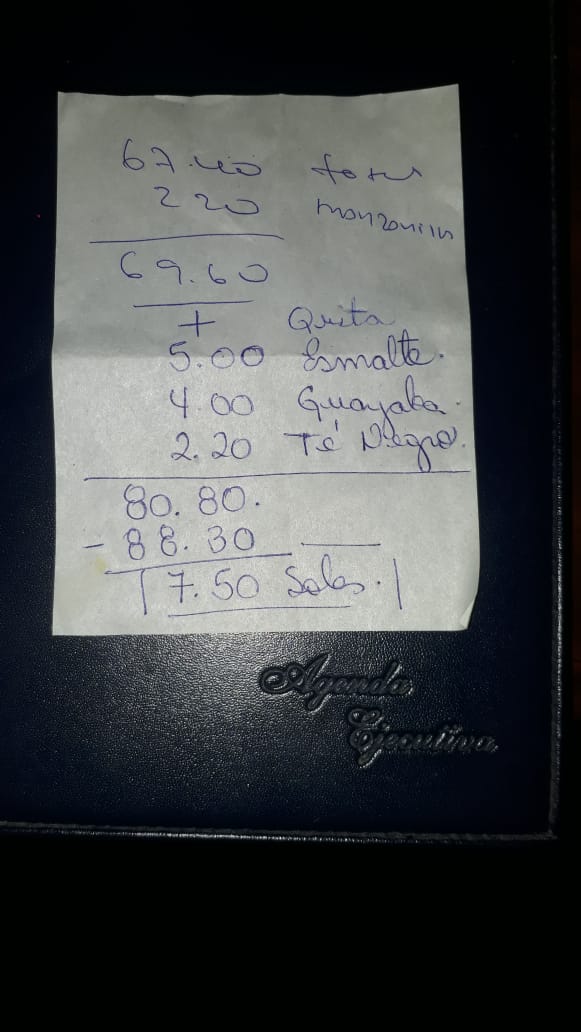 67.40
220 manzanilla
69.60
+ Quita
5.00 Esmalte.
4.00 Guayaba.
2.20 Té Negro.
80.80.
- 88.30
7.50 Soles.
Agenda
Ejecutiva